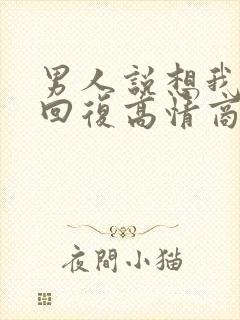 男人說想我
回復高情商
夜間小猫